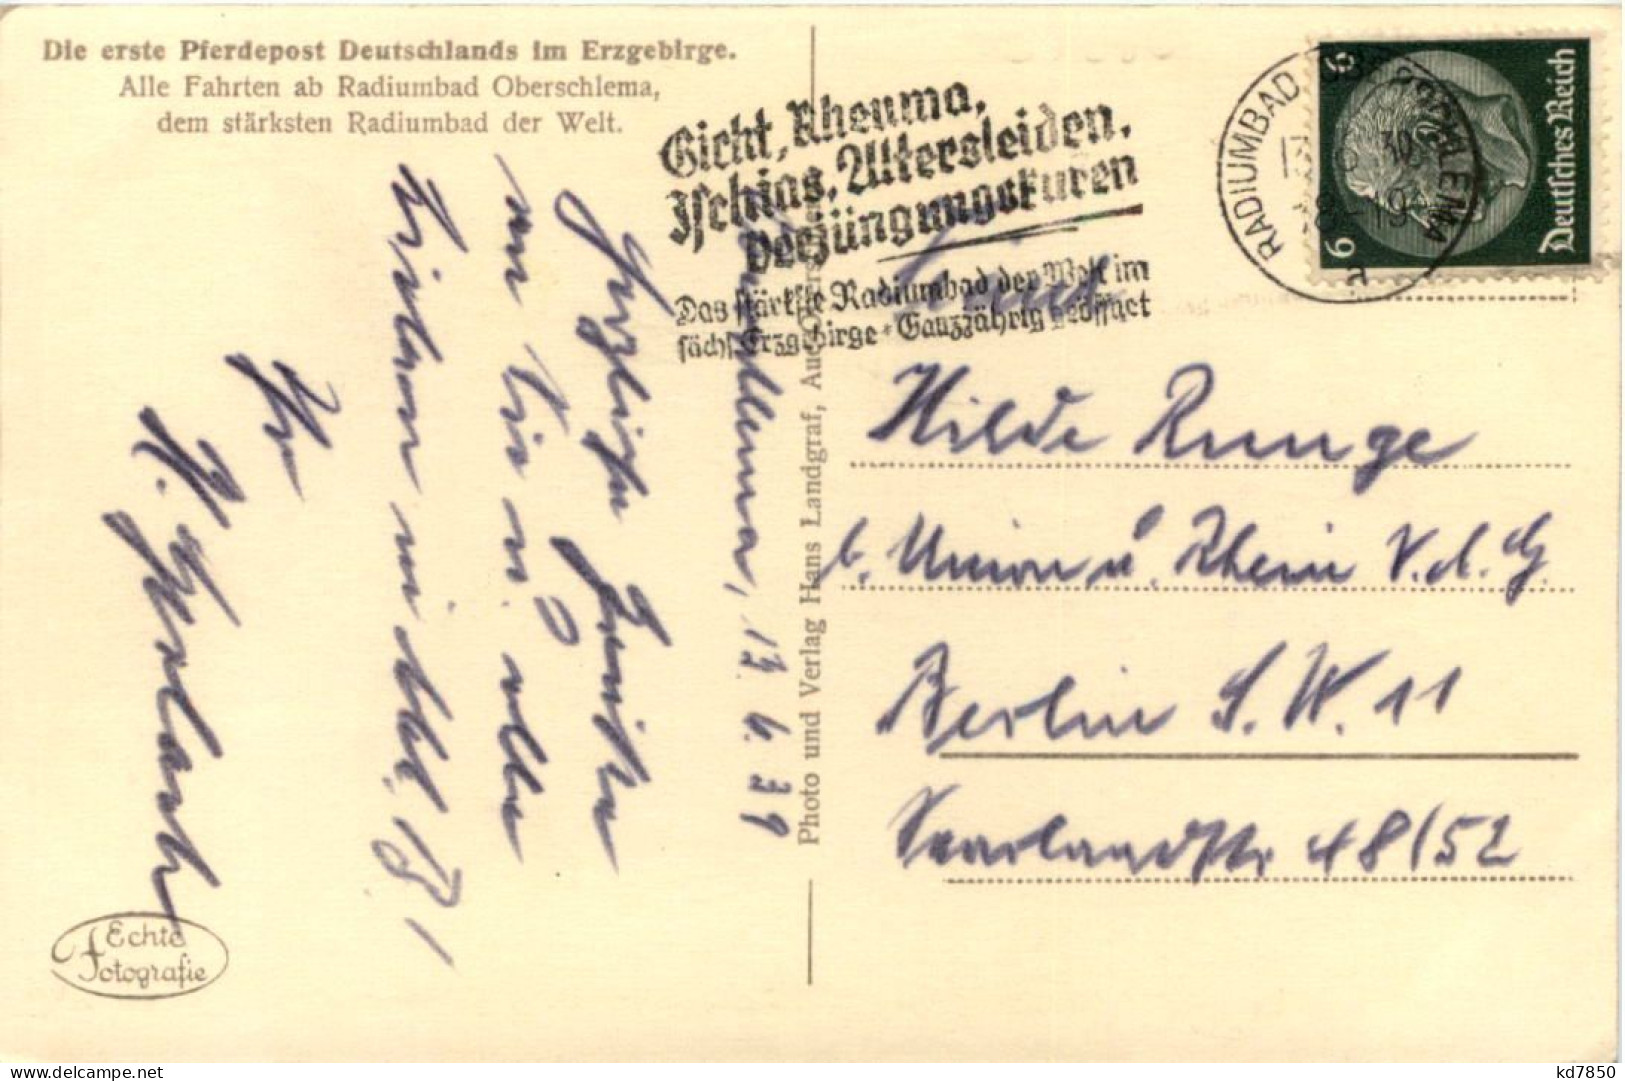 Die erste Pferdepost Deutschlands im Erzgebirge.
Alle Fahrten ab Radiumbad Oberschlema,
dem stärksten Radiumbad der Welt.
Gicht, Rheuma,
Ischias, Altersleiden,
Verjüngungskuren
Das stärkste Radiumbad der Welt im
sächs. Erzgebirge * Ganzjährig geöffnet
RADIUMBAD OBERSCHLEMA
Deutsches Reich
6 6
12. 6. 39
Herzliche Grüße
an Sie u. alle
Ihr
Photo und Verlag Hans Landgraf, Aue
Hilde Runge
b. Union u. Rhein V.A.G.
Berlin S.W. 11
Saarlandstr. 48/52
Echte
Fotografie
kd7850